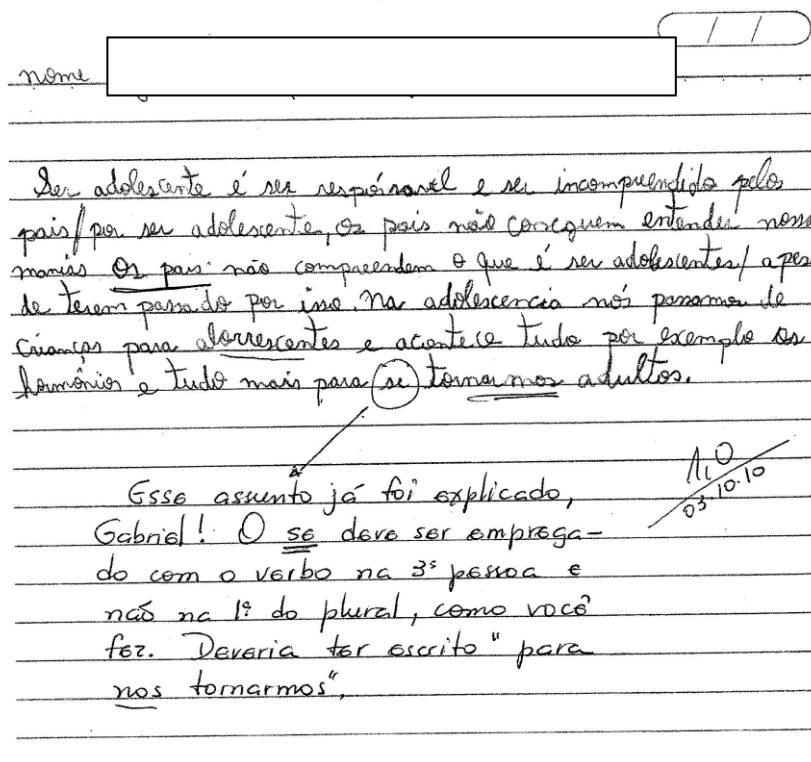 / /
nome
Ser adolescente é ser respónsavel e ser incompreendido pelos
pais/ por ser adolescente, os pais não conseguem entender nossa
manias Os pais não compreendem o que é ser adolescentes/ apes
de terem passado por isso. Na adolescencia nós passamos de
crianças para adorrescentes e acontece tudo por exemplo os
hormônios e tudo mais para se tornarmos adultos.
1,0
03.10.10
Esse assunto já foi explicado,
Gabriel! O se deve ser emprega-
do com o verbo na 3ª pessoa e
não na 1ª do plural, como você
fez. Deveria ter escrito "para
nos tornarmos".